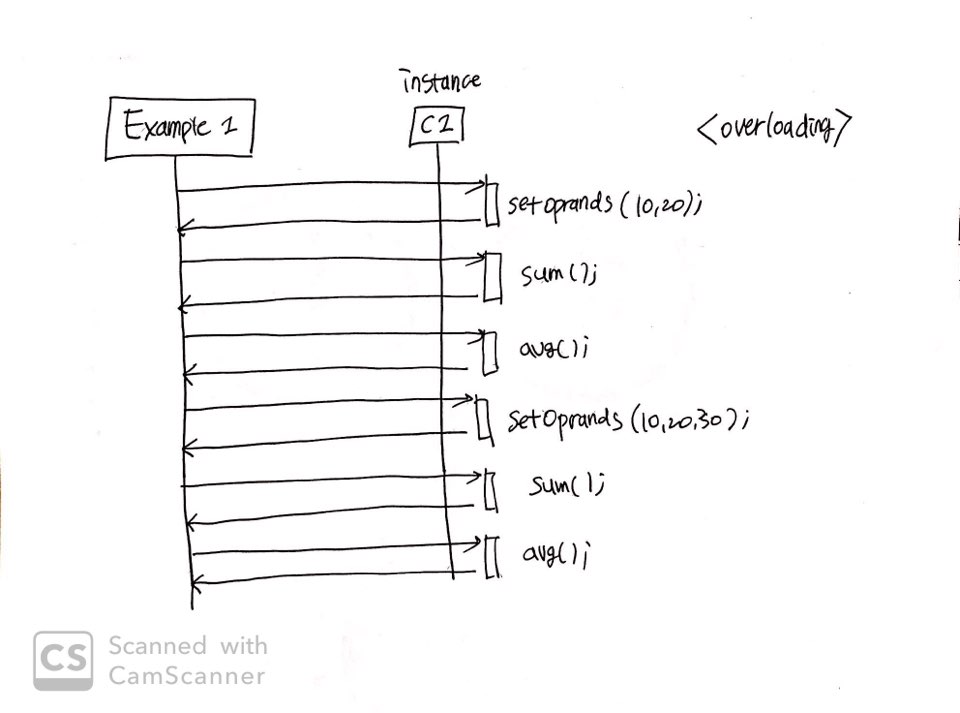 instance
Example 1
C1
<overloading>
setoprands (10,20);
sum();
avg();
setOprands (10,20,30);
sum();
avg();
CS
Scanned with
CamScanner